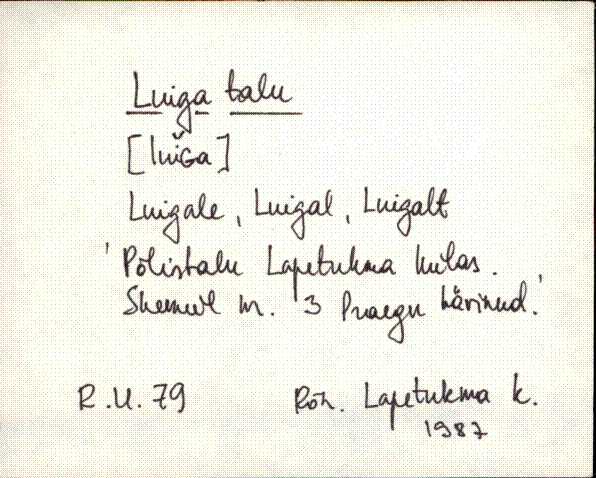 Luiga talu
[luĭGa]
Luigale, Luigal, Luigalt
'Põlistalu Lapetukma külas.
Skeemil nr. 3 Praegu hävinud.'
R.U. 79 Rõn. Lapetukma k.
1987